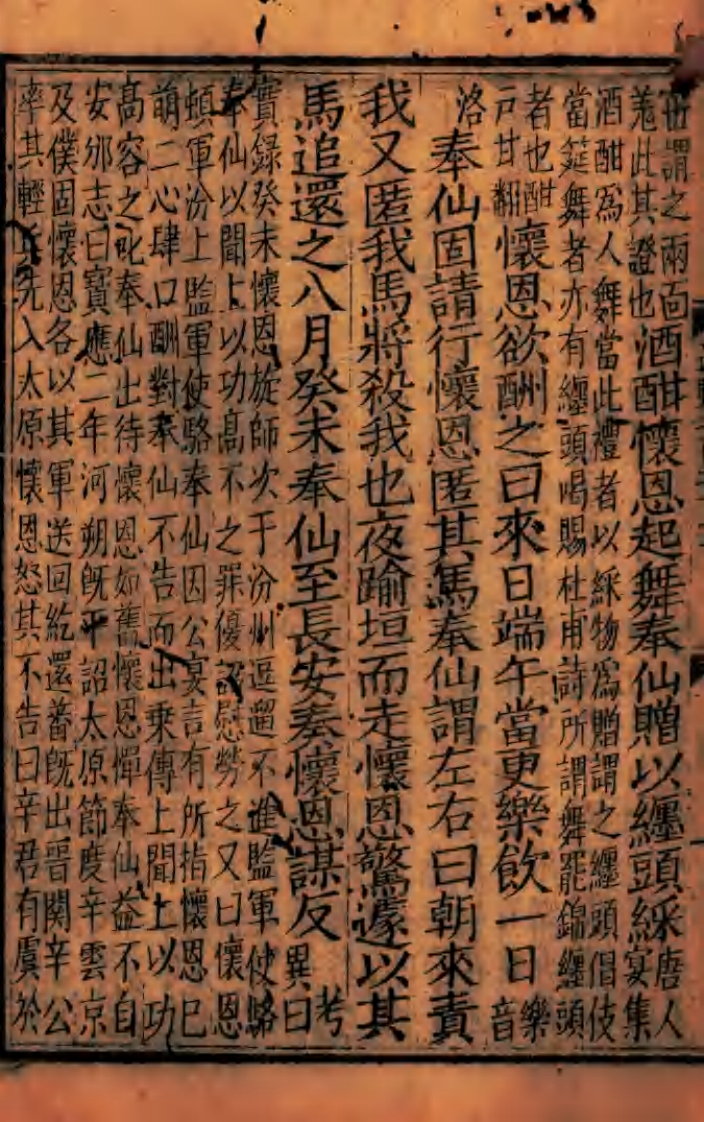 世謂之兩面
羗此其證也
酒酣懷恩起舞奉仙贈以纏頭綵
唐人
宴集
酒酣爲人舞當此禮者以綵物爲贈謂之纏頭倡伎
當筵舞者亦有纏頭喝賜杜甫詩所謂舞罷錦纏頭
者也酣
戶甘翻
懷恩欲酬之曰來日端午當更樂飲一日
樂
音
洛
奉仙固請行懷恩匿其馬奉仙謂左右曰朝來責
我又匿我馬將殺我也夜踰垣而走懷恩驚遽以其
馬追還之八月癸未奉仙至長安奏懷恩謀反
考
異曰
實録癸未懷恩旋師次于汾州逗遛不進監軍使駱
奉仙以聞上以功高不之罪優詔慰勞之又曰懷恩
頓軍汾上監軍使駱奉仙因公宴言有所指懷恩已
萌二心肆口酬對奉仙不告而出乘傳上聞上以功
高容之叱奉仙出待懷恩如舊懷恩憚奉仙益不自
安邠志曰寶應二年河朔旣平詔太原節度辛雲京
及僕固懷恩各以其軍送回紇還蕃旣出晉關辛公
率其輕兵先入太原懷恩怒其不告曰辛君有虞於